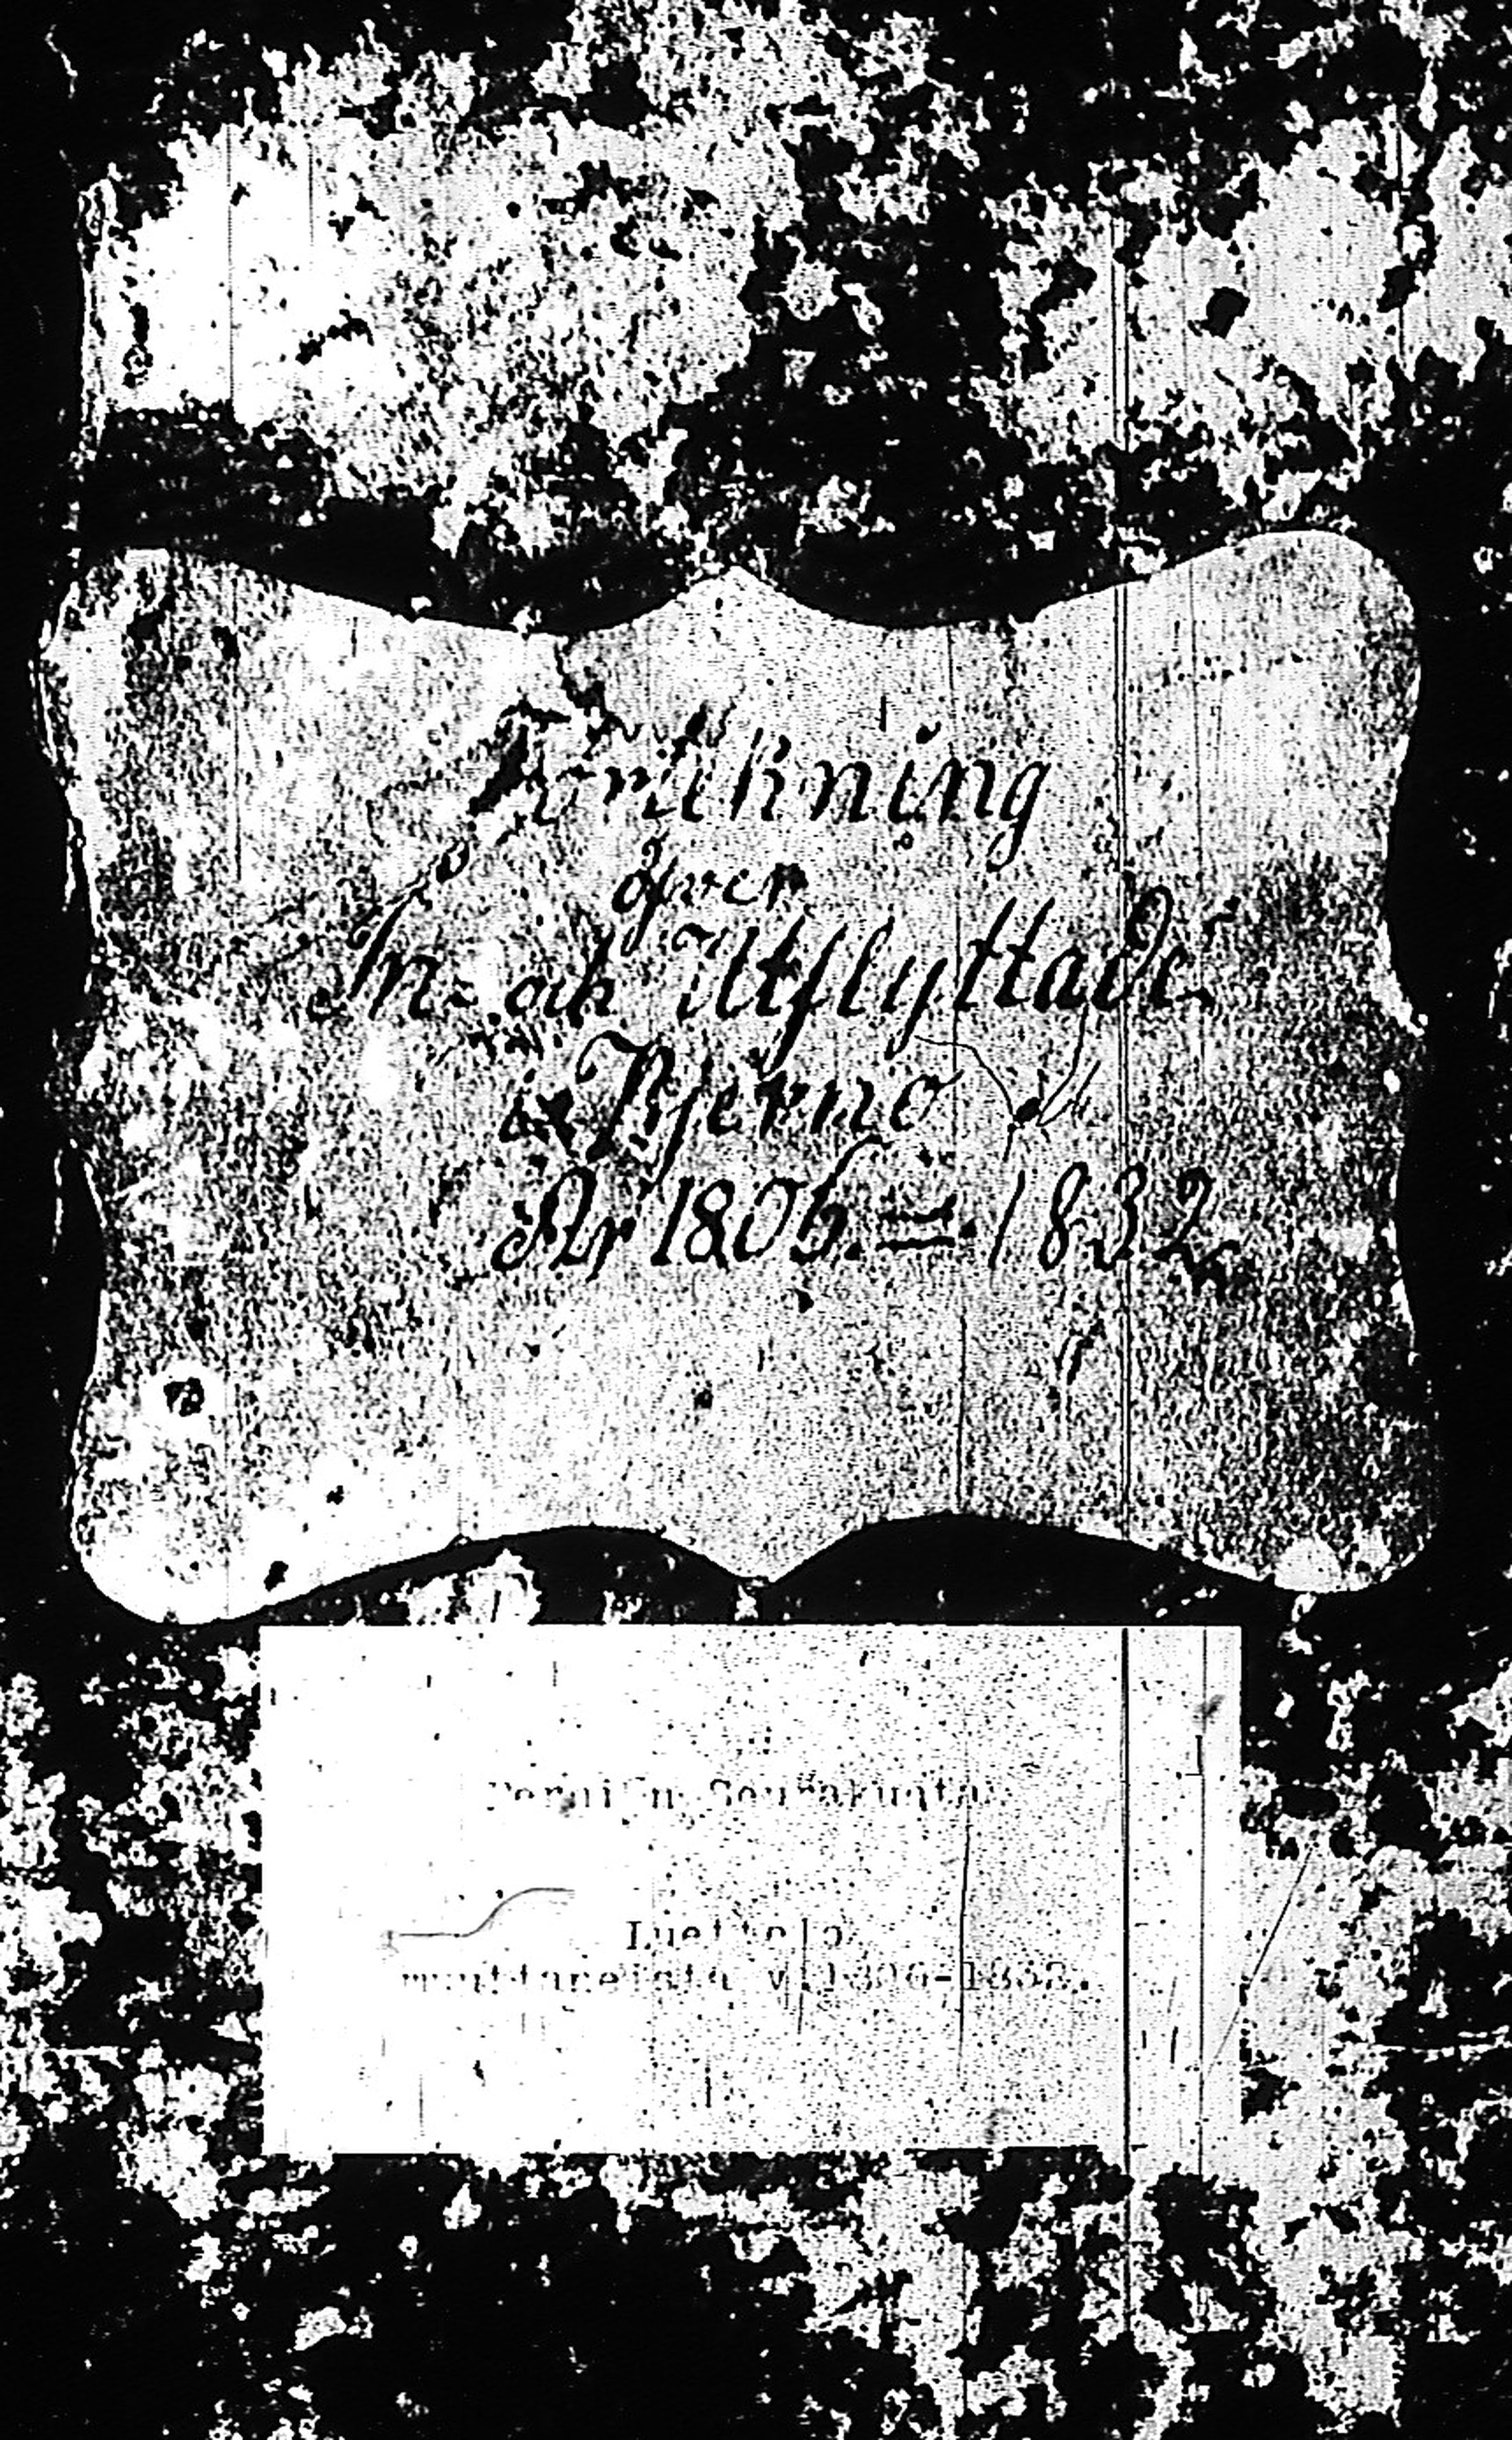 Förtekning
öfver
In- och Utflyttade
i Bjerno
År 1806. — 1832
Perniön Seurakunta.
Luettelo
muuttaneista v.1806-1832.